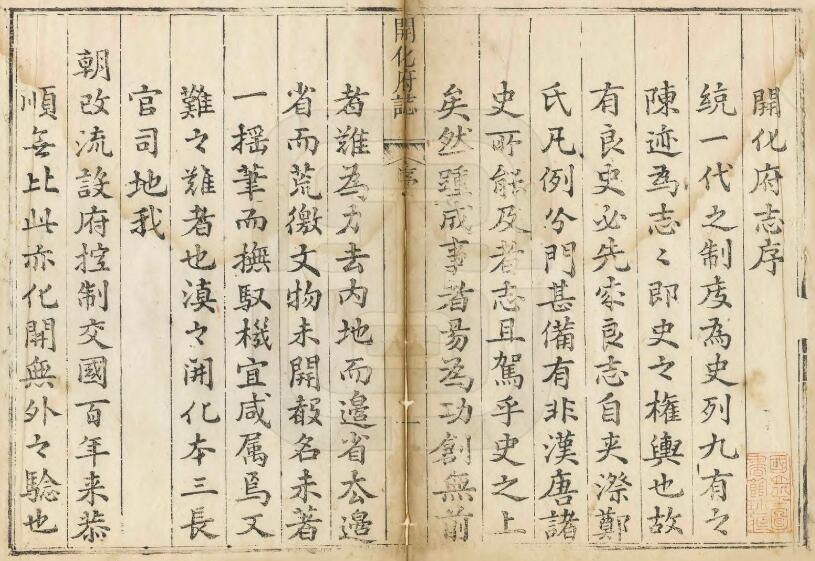 開化府志序
統一代之制度為史列九有之
陳迹為志〻即史之權輿也故
有良史必先索良志自夾漈鄭
氏凡例分門甚備有非漢唐諸
史所能及者志且駕乎史之上
矣然踵成事者易為功創無前
開化府誌
序
一
者難為力去內地而邊省去邊
省而荒徼文物未開聲名未著
一搖筆而撫馭機宜咸属焉又
難之難者也滇之開化本三長
官司地我
朝改流設府控制交國百年来恭
順無比此亦化開無外之驗也